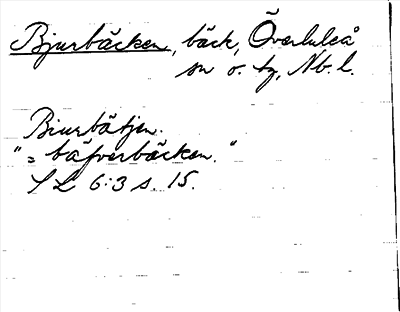 Bjurbäcken, bäck, Överluleå
sn o. tg, Nb. l.
Biurbätjen.
"= bäfverbäcken."
SL 6:3 s. 15.